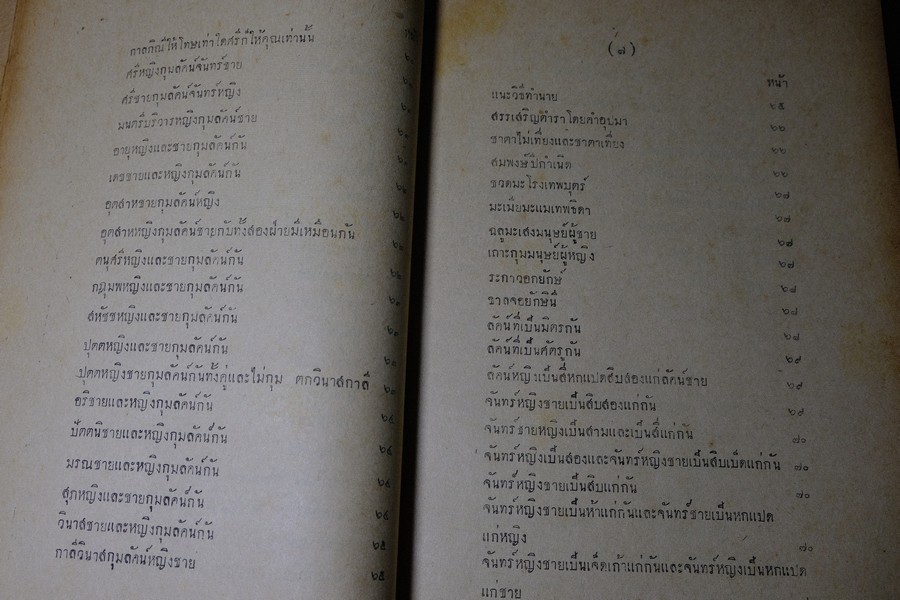 กาลกิณีให้โทษเท่าใดศรีก็ให้คุณเท่านั้น
ศรีหญิงกุมลัคน์จันทร์ชาย
ศรีชายกุมลัคน์จันทร์หญิง
มนตรีบริวารหญิงกุมลัคน์ชาย
อายุหญิงและชายกุมลัคน์กัน
เดชชายและหญิงกุมลัคน์กัน
อุตสาหชายกุมลัคน์หญิง
อุตสาหหญิงกุมลัคน์ชายกับทั้งสองฝ่ายมีเหมือนกัน
ตนุศรีหญิงและชายกุมลัคน์กัน
กฎุมพหญิงและชายกุมลัคน์กัน
สหัชชหญิงและชายกุมลัคน์กัน
ปุตตหญิงและชายกุมลัคน์กัน
ปุตตหญิงชายกุมลัคน์กันทั้งคู่และไม่กุม ตกวินาสกาลี
อริชายและหญิงกุมลัคน์กัน
ปัตตนิชายและหญิงกุมลัคน์กัน
มรณชายและหญิงกุมลัคน์กัน
สุภหญิงและชายกุมลัคน์กัน
วินาสชายและหญิงกุมลัคน์กัน
กาลีวินาสกุมลัคน์หญิงชาย
(๘)
หน้า
แนะวิธีทำนาย ๖๕
สรรเสริญตำราโดยคำอุปมา ๖๖
ชาตาไม่เที่ยงและชาตาเที่ยง ๖๖
สมพงษ์ปีกำเนิด ๖๖
ชวดมะโรงเทพบุตร์ ๖๗
มะเมียมะแมเทพธิดา ๖๗
ฉลูมะเสงมนุษย์ผู้ชาย ๖๗
เถาะกุนมนุษย์ผู้หญิง ๖๗
ระกาวอกยักษ์ ๖๘
ขาลจอยักษินี ๖๘
ลัคน์ที่เป็นมิตรกัน ๖๘
ลัคน์ที่เป็นศัตรูกัน ๖๙
ลัคน์หญิงเป็นสี่หกแปดสิบสองแก่ลัคน์ชาย ๖๙
จันทร์หญิงชายเป็นสิบสองแก่กัน ๖๙
จันทร์ชายหญิงเป็นสามและเป็นสี่แก่กัน ๗๐
จันทร์หญิงเป็นสองและจันทร์หญิงชายเป็นสิบเบ็ดแก่กัน ๗๐
จันทร์หญิงชายเป็นสิบแก่กัน ๗๐
จันทร์หญิงชายเป็นห้าแก่กันและจันทร์ชายเป็นหกแปด
แก่หญิง ๗๐
จันทร์หญิงชายเป็นเจ็ดเก้าแก่กันและจันทร์หญิงเป็นหกแปด
แก่ชาย